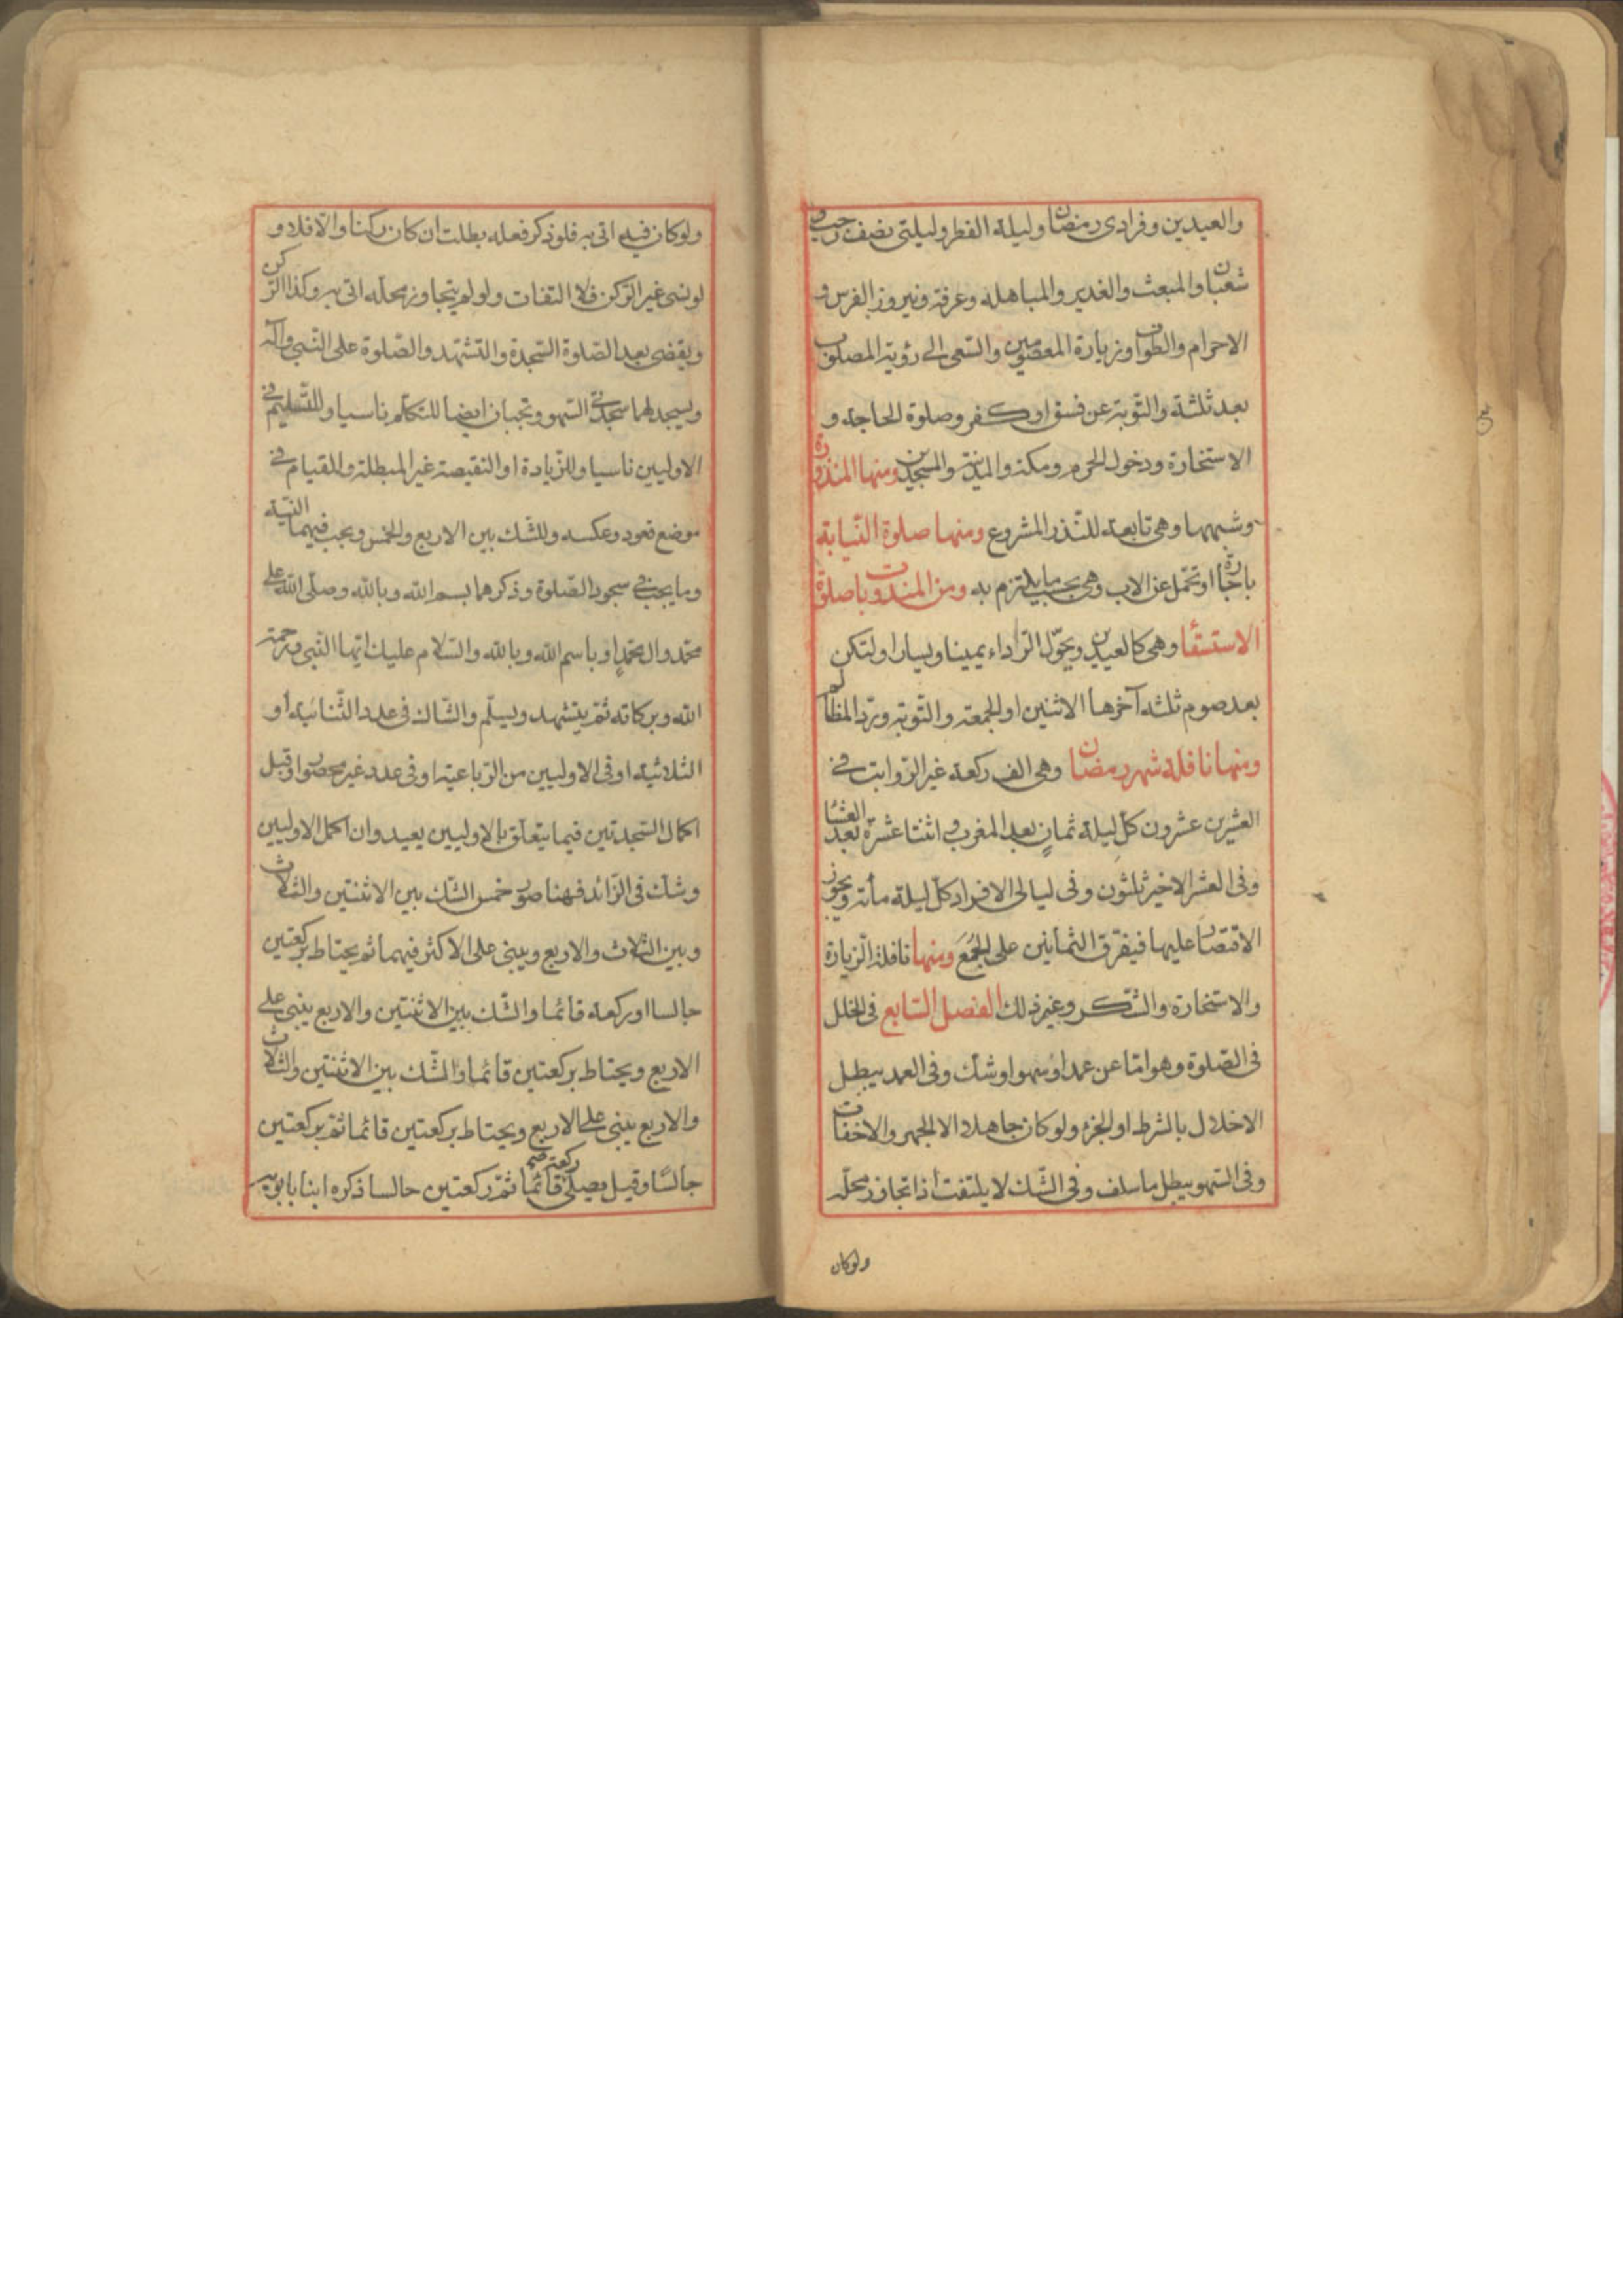 والعيدين وفرادى رمضان وليلة الفطر وليلتى نصف رجب و
شعبان والمبعث والغدير والمباهلة وعرفة ونيروز الفرس و
الاحرام والطواف وزيارة المعصومين والسعى الى رؤية المصلوب
بعد ثلثة والتوبة عن فسق او كفر وصلوة الحاجة و
الاستخارة ودخول الحرم ومكة والمدينة والمسجدين ومنها المنذورة
وشبهها وهى تابعة للنذر المشروع ومنها صلوة النيابة
باجارة او تحمل عن الاب وهى بحسب ما يلتزم به ومن المندوبات صلوة
الاستسقا وهى كالعيدين ويحوّل الرداء يمينا ويسارا ولتكن
بعد صوم ثلثه آخرها الاثنين او الجمعة والتوبة وردّ المظالم
ومنها نافلة شهر رمضان وهى الف ركعة غير الرواتب فى
العشرين عشرون كلّ ليلة ثمانٍ بعد المغرب و اثنتا عشرة بعد العشا
وفى العشر الاخير ثلثون وفى ليالى الافراد كلّ ليلة مأته ويجوز
الاقتصار عليها فيفرّق الثمانين على الجُمَعَ ومنها نافلة الزيارة
والاستخارة والشكر وغير ذلك الفصل السابع فى الخلل
فى الصّلوة وهو امّا عن عمد او سهو او شك وفى العمد يبطل
الاخلال بالشرط او الجزء ولو كان جاهلا الا الجهر والاخفات
وفى السّهو يبطل ما سلف وفى الشّك لا يلتفت اذا تجاوز محلّه
ولوكان
ولوكان فيه اتى به فلو ذكر فعله بطلت ان كان ركنا والّا فلا و
لو نسى غير الرّكن فلا التفات ولو لم يتجاوز محلّه اتى به وكذا الرّكن
ويقضى بعد الصّلوة السّجدة والتشهّد والصّلوة على النّبى وآله
ويسجد لهما سجدتى السّهو وتجبان ايضا للتكلّم ناسيا وللتسليم فى
الاوليين ناسيا وللزّيادة او النقيصة غير المبطلة وللقيام فى
موضع قعود وعكسه وللشّك بين الاربع والخمس ويجب فيهما النّية
وما يجب فى سجود الصّلوة وذكرهما بسم الله وبالله وصلّى الله على
محمّد وال محمّد او باسم الله وبالله والسّلام عليك ايّها النّبى ورحمة
الله وبركاته ثمّ يتشهد ويسلّم والشّاك فى عدد الثّنائية او
الثلاثية او فى الاوليين من الرّباعية او فى عدد غير محصور او قبل
اكمال السّجدتين فيما يتعلّق بالاوليين يعيد وان اكمل الاوليين
وشك فى الزّائد فهنا صور خمس الشّك بين الاثنتين والثلاث
وبين الثلاث والاربع ويبنى على الاكثر فيهما ثم يحتاط بركعتين
جالسا او ركعة قائما والشّك بين الاثنتين والاربع يبنى على
الاربع ويحتاط بركعتين قائما والشّك بين الاثنتين والثلاث
والاربع يبنى على الاربع ويحتاط بركعتين قائما ثمّ بركعتين
جالسًا وقيل يصلّى ركعة قائما ثمّ ركعتين جالسا ذكره ابنا بابويه